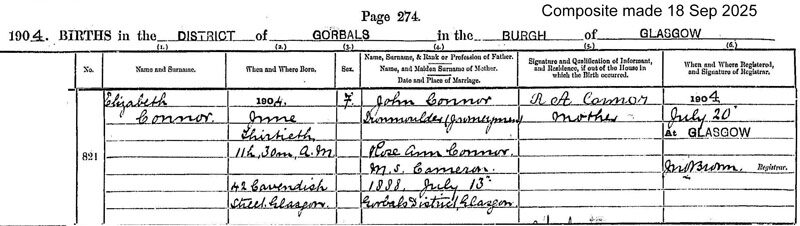 Page 274.
Composite made 18 Sep 2025
1904. BIRTHS in the DISTRICT of GORBALS in the BURGH of GLASGOW
(1.) (2.) (3.) (4.) (5.) (6.)
No. Name and Surname. When and Where Born. Sex. Name, Surname, & Rank or Profession of Father. Name, and Maiden Surname of Mother. Date and Place of Marriage. Signature and Qualification of Informant, and Residence, if out of the House in which the Birth occurred. When and Where Registered, and Signature of Registrar.
Elizabeth 1904. F. John Connor R A Connor 1904
Connor. June Ironmoulder (Journeyman) Mother July 20
Thirtieth at GLASGOW
821 11h. 30m. A.M Rose Ann Connor.
M.S. Cameron. Jno Brown Registrar.
42 Cavendish 1888. July 13
Street, Glasgow. Gorbals District, Glasgow.